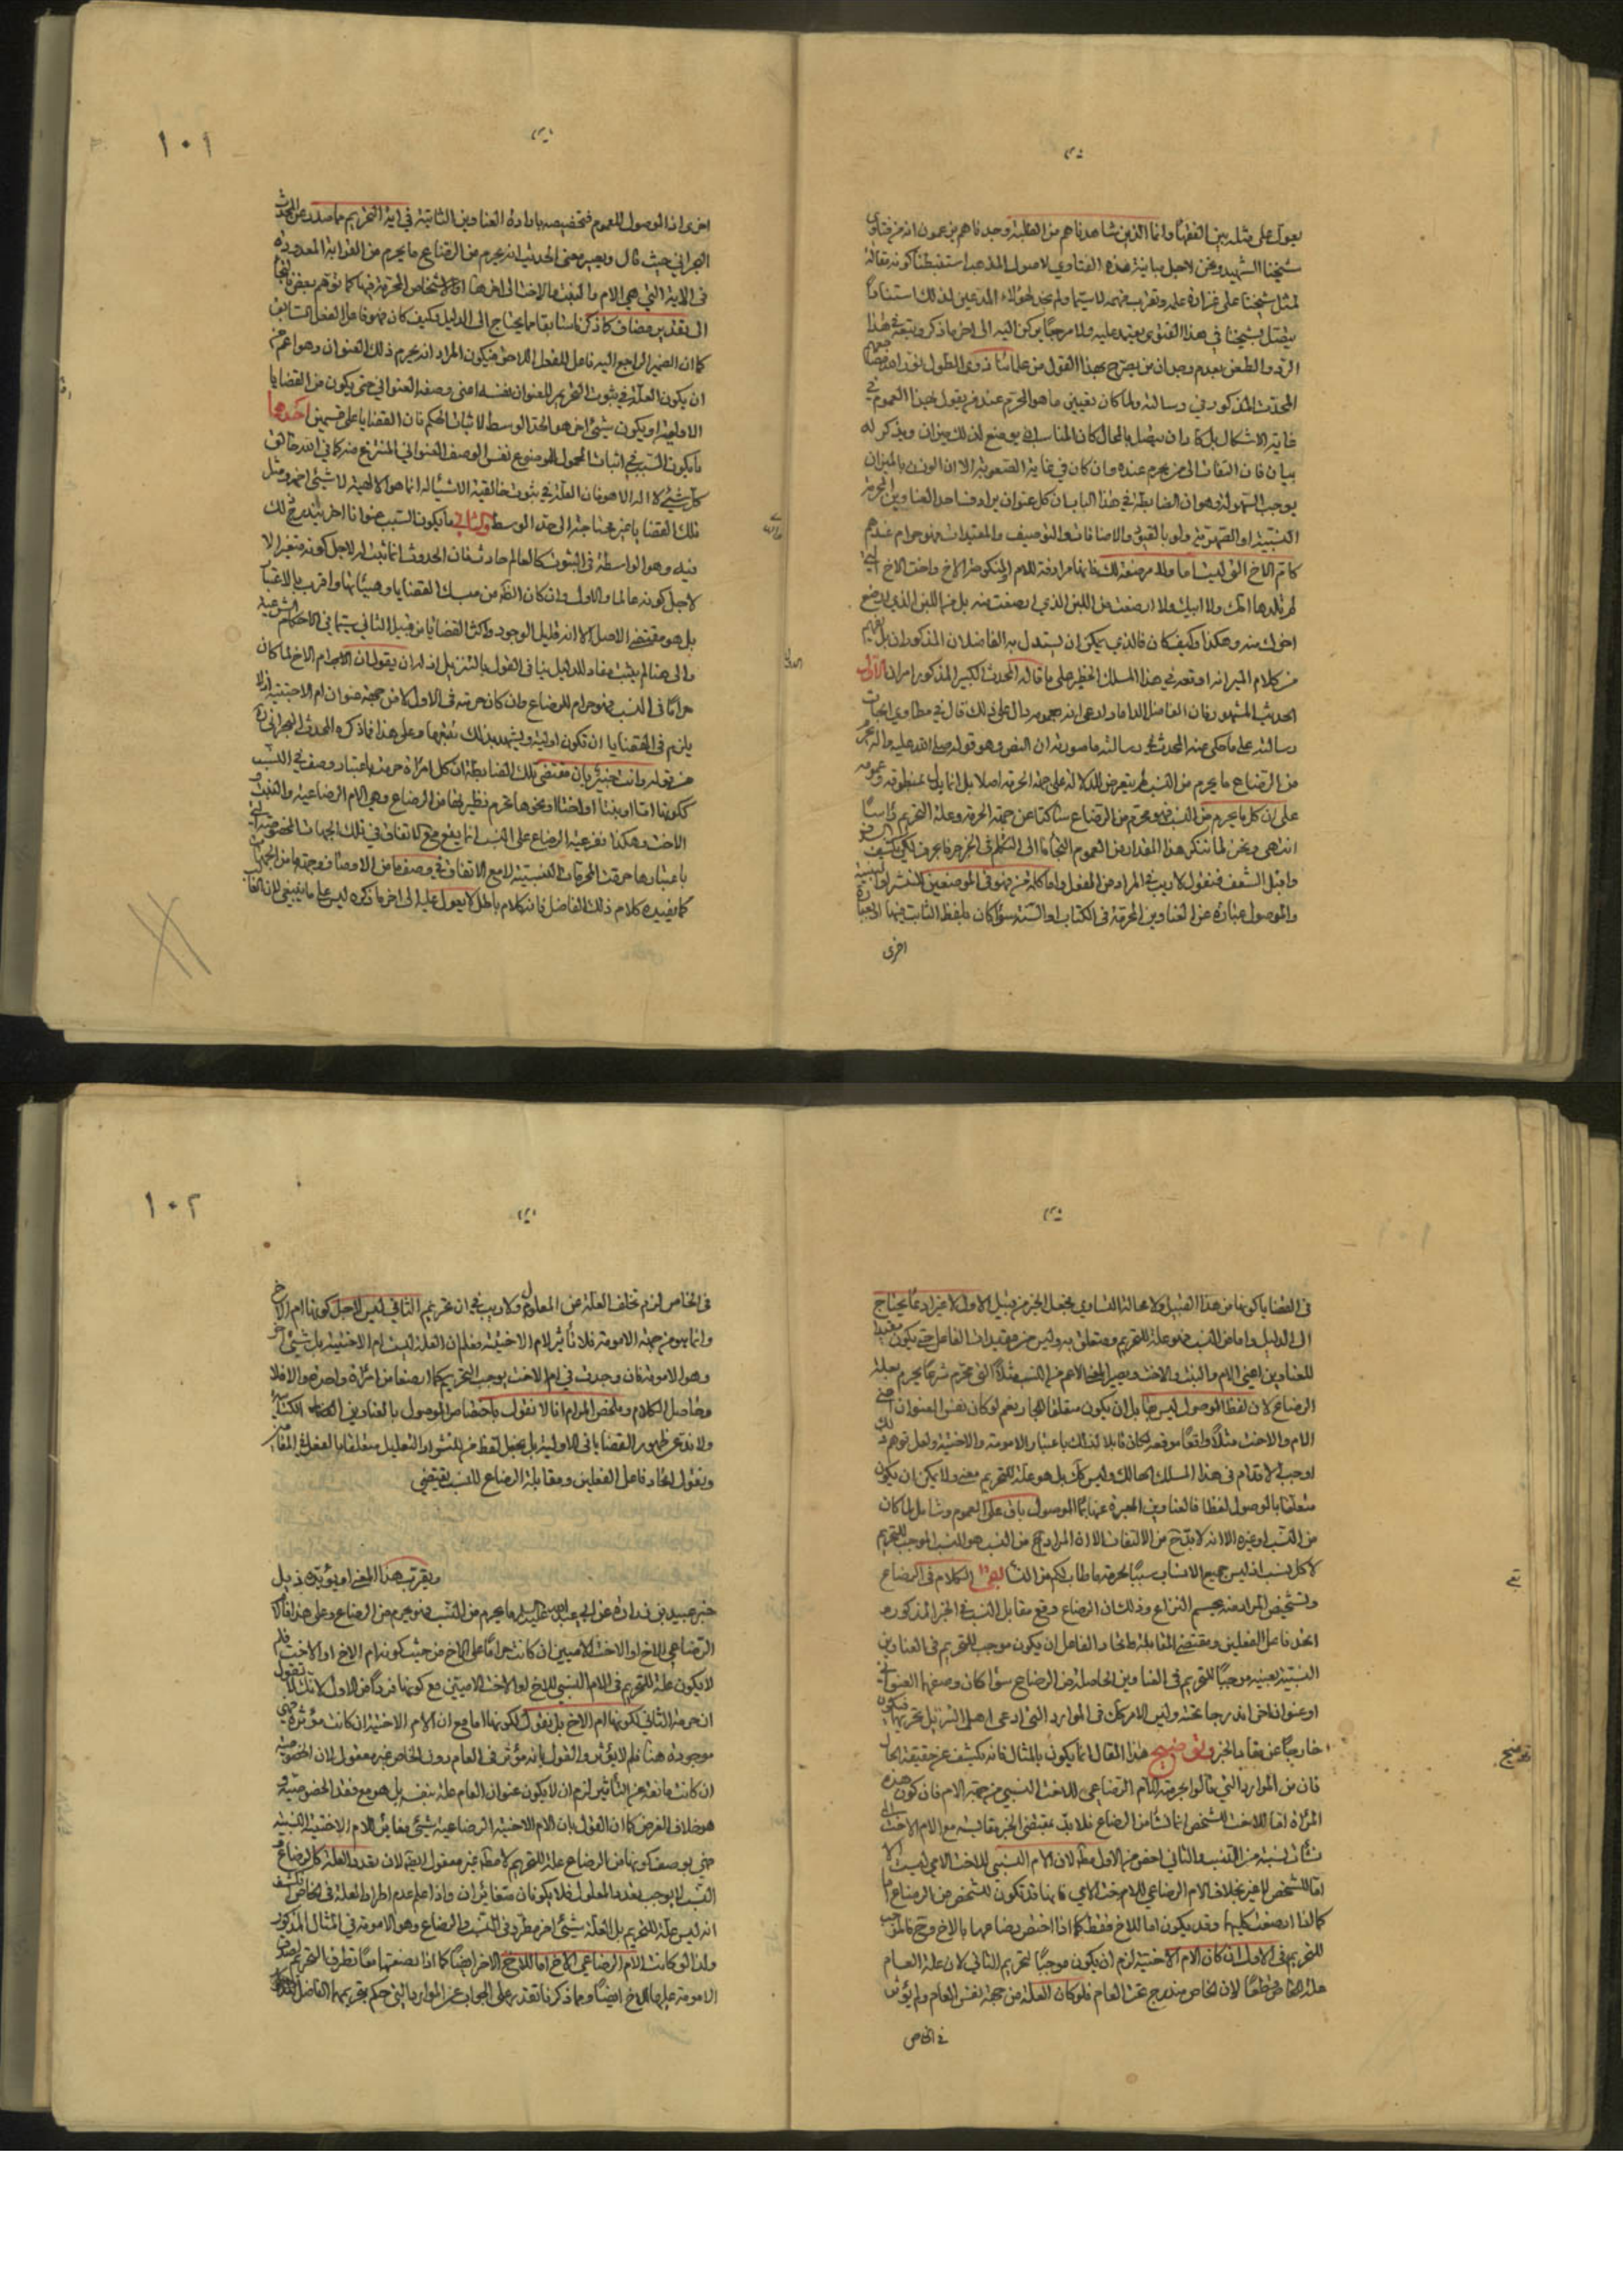 يعول على مثله بين الفقهاء وانما الذين شاهدناهم من الطلبة وجدناهم يزعمون انه من فتاوى
شيخنا الشهيد ونحن لاجل مباينة هذه الفتاوى لاصول المذهب استقبطنا كونه مقالة
لمثل شيخنا على غزارة علمه وتقرب فهمه لا سيما ولم نجد لهؤلاء المدعين لذلك استنادا
يتصل بشيخنا في هذا الفتوى يعتمد عليه ولا مرجعا يركن اليه الى اخر ما ذكر ويتجه هذا
الرد والطعن بعدم وجدان من يصرح بهذا القول من علمائنا ذوى الطول
المحدث المذكور في رسالته ولما كان تعيين ما هو المحرم عندهم بقول بهذا العموم في
غاية الاشكال بل كاد ان يتصل بالمحال كان المناسب ان يوضع لذلك ميزان ويذكر له
بيان فان التفات الى من يحرم عنده وان كان في غاية الصعوبة الا ان الوزن بالميزان
يوجب السهولة وهو ان الضابطة في هذا الباب ان كل عنوان يرادف احد العناوين المحرمة
النسبية او الصهرية ولو بالقيود والاضافات والتوصيف والتقييدات فهو حرام عندهم
كام الاخ التي ليست اما ولا مرضعة لك فانها مرادفة للام او منكوحة الاب واخت الاخ التي
لم تلدها امك ولا ابيك ولا ارتضعت من اللبن الذي ارتضعت منه بل من اللبن الذي ارتضع
اخوك منه وهكذا وكيف كان فالذي يمكن ان يستدل به الفاضلان المذكوران بل يفهم
من كلام المير انه اوقعه في هذا المسلك الخطير على ما قاله المحدث الكبير المذكور امران الاول
الحديث المشهور فان الفاضل الداماد ادعى انه بعمومه دال على ذلك قال في مطاوى ابحاث
رسالته على ما حكى عنه المحدث في رسالته ما صورته ان النص وهو قوله صلى الله عليه واله يحرم
من الرضاع ما يحرم من النسب لم يتعرض للدلالة على جهة الحرمة اصلا بل انما يدل بمنطوقه وعمومه
على ان كل ما يحرم من النسب فهو محرم من الرضاع ساكتا عن جهة الحرمة وعلة التحريم راسا
انتهى ونحن لما ننكر هذا المقدار من العموم التجأنا الى التكلم في الخبر حرفا بحرف لكي ينكشف
واقبل الشغف فنقول لا ريب في المراد من الفعل واما كلمة من فهو في الموضعين للنشو او السببية
والموصول عبارة عن العناوين المحرمة في الكتاب او السنة سواء كان بلفظ الثابت فيها او بعبارة
اخرى
١٠١
اخرى اذ الموصول للعموم فتخصيصه بارادة العناوين الثابتة في اية التحريم مما صدر عن المحدث
البحراني حيث قال ويصير معنى الحديث انه يحرم من الرضاع ما يحرم من القرابة المعدودة
في الاية التي هي الام والبنت والاخت الى اخرها او الاشخاص المحرمة فيها كما توهم بعض فالتجأ
الى تقدير مضاف كما ذكرنا سابقا مما يحتاج الى الدليل وكيف كان فهو فاعل الفعل السابق
كما ان الضمير الراجع اليه فاعل للفظ اللاحق فيكون المراد انه يحرم ذلك العنوان وهو اعم من
ان يكون العلة في ثبوت التحريم للعنوان نفسه اعنى وصفه العنواني حتى يكون من القضايا
الاولية او يكون شيئ اخر هو الحد الوسط لاثبات الحكم فان القضايا على قسمين احدهما
ما يكون السبب في اثبات المحمول للموضوع نفس الوصف العنواني المنتزع منه كما في الله خالق
كل شيئ لا اله الا هو فان العلة في ثبوت خالقية الاشياء له انما هو الالهية لا شيئ اخر ومثل
تلك القضايا غير محتاجة الى حد الوسط والثاني ما يكون السبب عنوانا اخر يندرج ذلك
فيه وهو الواسطة في الثبوت كالعالم حادث فان الحدوث انما ثبت له لاجل كونه متغيرا لا
لاجل كونه عالما والاول وان كان اظهر من مسلك القضايا وهيئاتها واقرب بالاعتبار
بل هو مقتضى الاصل الا انه قليل الوجود واكثر القضايا من قبيل الثاني سيما في الاحكام الشرعية
والى هنا لم يثبت مفاد للدليل ينافى القول بالتنزيل اذ له ان يقول ان ام الاخ لما كان
حراما في النسب فهو حرام للرضاع وان كان حرمته في الاول لا من جهة عنوان ام الاختية اذ لا
يلزم في القضايا ان تكون اولية ويشهد بذلك تتبعها وعلى هذا فما ذكره المحدث البحراني
من قوله وانت خبير بان مقتضى تلك الضابطة ان كل امراة حرمت باعتبار وصف في النسب
ككونها اما او بنتا او اختا او نحوها تحرم نظيرتها من الرضاع وهي الام الرضاعية والبنت و
الاخت وهكذا تفرعية الرضاع على النسب انما يقع مع الاتفاق في تلك الجهات المخصوصة التي
باعتبارها حرمت المحرمات النسبية لا مع الاتفاق في وصف ما من الاوصاف وجهة ما من الجهات
كما يفيده كلام ذلك الفاضل فانه كلام باطل لا يعول عليه الى اخر ما ذكره ليس على ما ينبغي لان الغالب
في القضايا كونها من هذا القبيل ولا محالة التساوى فجعل الخبر من قبيل الاول لا غير ادعاء يحتاج
الى الدليل واما من النسب فهو علة للتحريم ومتعلق به وليس من مقيدات الفاعل حتى يكون مقيدا
للعناوين اعنى الام والبنت والاخت ويصير المعنى الاعم من النسب مثلا التي تحرم شرعا يحرم بعلة
الرضاع لان لفظ الموصول ليس قابلا بان يكون متعلقا للجار نعم لو كان نفس العنوان اعنى
الام والاخت مثلا واقعا موقعه لكان قابلا لذلك باعتبار الامومة والاختية ولعل توهم ذلك
اوجب الاقدام في هذا المسلك الهالك وليس كك بل هو علة للتحريم معنى ولا يمكن ان يكون
متعلقا بالموصول لفظا فالعناوين المعبرة عنها بما الموصول باق على العموم وشامل لما كان
من النسب او غيره الا انه لا بد من الالتفات الى ان المراد من النسب هو النسب الموجب للتحريم
لا كل نسب اذ ليس جميع الانساب سببا لحرمة ما طاب لكم من النساء بقي الكلام في الرضاع
وتشخيص المراد منه يحسم النزاع وذلك ان الرضاع وقع مقابل النسب في الخبر المذكور و
اتحد فاعل الفعلين ومقتضى المقابلة واتحاد الفاعل ان يكون موجب التحريم في العناوين
النسبية بعينه موجبا للتحريم في العناوين الحاصلة من الرضاع سواء كان وصفها العنواني
او عنوان اخر اندرجا تحته وليس الامر كك في الموارد التي ادعى اهل التنزيل تحريمها فيكون
خارجا عن مفاد الخبر وتوضيح هذا المقال انما يكون بالمثال فانه يكشف عن حقيقة الحال
فان من الموارد التي قالوا بحرمة الام الرضاعى للاخت النسبي من جهة الام فان كون هذه
المراة اما للاخت الشخص انما نشأ من الرضاع فلا بد بمقتضى الخبر مقابلته مع الام الاخت التي
نشأت نسبته من النسب والثاني اخص من الاول مطلقا لان الام النسبي للاخت الامى ليست الا
اما للشخص لا غير بخلاف الام الرضاعي للاخت الامى فانها قد تكون للشخص من الرضاع اما
كما اذا ارتضعت كليهما وقد يكون اما للاخ فقط كما اذا اختص رضاعها بالاخ وح فالموجب
للتحريم في الاول ان كان الام الاختية لزم ان يكون موجبا لتحريم الثاني لان علة العام
علة الخاص قطعا لان الخاص مندرج تحت العام فلو كان العلة من جهة نفس العام ولم يؤثر
في الخاص
بقي
توضيح
١٠٢
في الخاص لزم تخلف العلة عن المعلول ولا ريب في ان تحريم الثاني ليس لاجل كونها ام الاخ
وانما هو من جهة الامومة فلا تأثير لام الاختية فعلم ان العلة ليست ام الاختية بل شيئ اخر
وهو الامومة فان وجدت في ام الاخت يوجب التحريم كما ارتضعا من امراة واحدة والا فلا
وحاصل الكلام وملخص المرام انا لا نقول باختصاص الموصول بالعناوين الكتابية
ولا ندعى ظهور القضايا في الاولية بل نجعل لفظ من للنشو او التعليل متعلقا بالفعل المقدر
ونقول اتحاد فاعل الفعلين ومقابلة الرضاع للنسب يقتضي
ويقرب هذا المعنى او يؤيده ذيل
خبر عبيد بن زرارة عن ابي عبد الله عليه السلام ما يحرم من النسب فهو يحرم من الرضاع وعلى هذا فالام
الرضاعي للاخ او الاخت الاميين ان كانت حراما على الاخ من حيث كونه ام الاخ او الاخت فلم
لا يكون علة للتحريم في الام النسبي للاخ او الاخت الاميين مع كونها فردا من الاول لانك تقول
ان حرمة الثاني لكونها ام الاخ بل تقول لكونها اما مع ان الام الاختية ان كانت مؤثرة فهي
موجودة هنا فلم لا يؤثر والقول بانه مؤثر في العام دون الخاص غير معقول لان الخصوصية
ان كانت مانعة عن التأثير لزم ان لا يكون عنوان العام علة بنفسه بل هو مع فقد الخصوصية و
هو خلاف الفرض كما ان القول بان الام الاختية الرضاعية شيئ يغاير الام الاختية النسبية
فهي بوصف كونها من الرضاع علة للتحريم لا مطلقا غير معقول ايضا لان تعدد العلة كالرضاع و
النسب لا يوجب تعدد المعلول فلا يكونان متغائران واذا علم عدم اطراد العلة في الخاص تكشف
انه ليس علة للتحريم بل العلة شيئ اخر مطرد في النسب والرضاع وهو الامومة في المثال المذكور
ولذا لو كانت الام الرضاعي للاخ اما للاخ الاخر ايضا كما اذا ارضعتهما معا تطرق التحريم لصدق
الامومة عليها للاخ ايضا وبما ذكرنا تقدر على الجواب عن الموارد التي حكم بتحريمها الفاضل الداماد